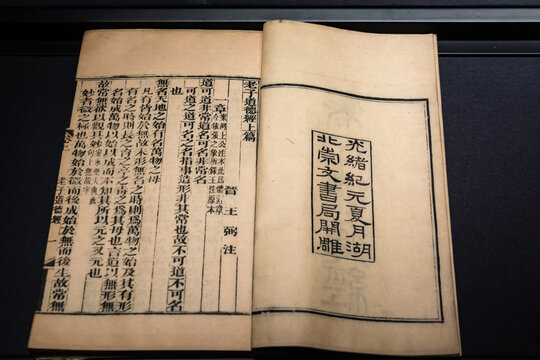 光緒紀元夏月湖
北崇文書局開雕
老子道德經上篇
晉王弼注
一章
道可道非常道名可名非常名
可道之道可名之名指事造形非其常也故不可道不可名
也
無名天地之始有名萬物之母
凡有皆始於無故未形無名之時則爲萬物之始及其有形
有名之時則長之育之亭之毒之爲其母也言道以無形無
名始成萬物以始以成而不知其所以元之又元也
故常無欲以觀其妙
妙者微之極也萬物始於微而後成始於無而後生故常無
老子道德經